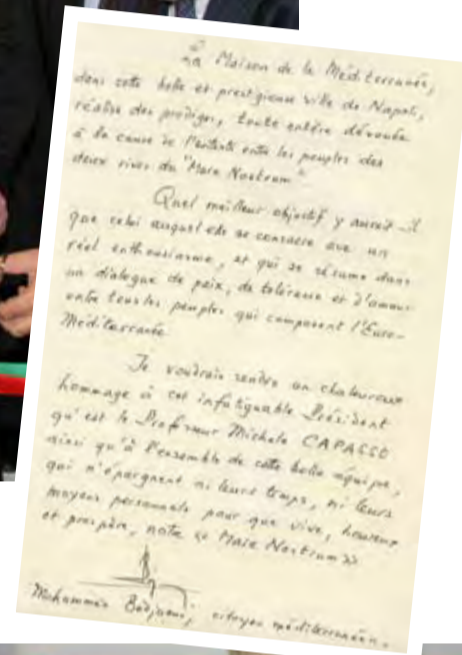 La Maison de la Méditerranée,
dans cette belle et prestigieuse ville de Napoli,
réalise des prodiges, toute entière dévouée
à la cause de l'entente entre les peuples des
deux rives du "Mare Nostrum"
Quel meilleur objectif y aurait-il
que celui auquel elle se consacre avec un
réel enthousiasme, et qui se résume dans
un dialogue de paix, de tolérance et d'amour
entre tous les peuples qui composent l'Euro-
Méditerranée
Je voudrais rendre un chaleureux
hommage à cet infatigable Président
qu'est le Professeur Michele CAPASSO
ainsi qu'à l'ensemble de cette belle équipe,
qui n'épargnent ni leurs temps, ni leurs
moyens personnels pour que vive, heureux
et prospère, notre « Mare Nostrum »
Mohammed Bedjaoui, citoyen méditerranéen.